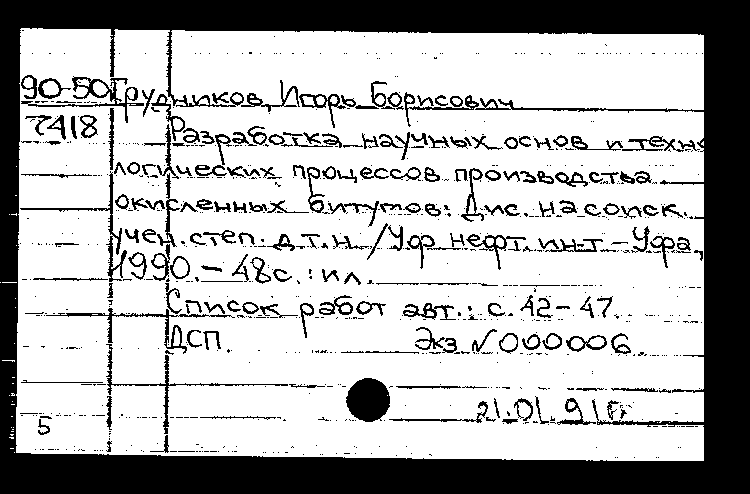 90-50 Грудников, Игорь Борисович
7418 Разработка научных основ и техно
логических процессов производства
окисленных битумов: Дис. на соиск.
учен. степ. д.т.н. /Уф нефт. ин-т – Уфа,
1990. – 48 с. : ил.
Список работ авт.: с. 42 – 47.
ДСП. Экз № 000006.
21.01.91
5